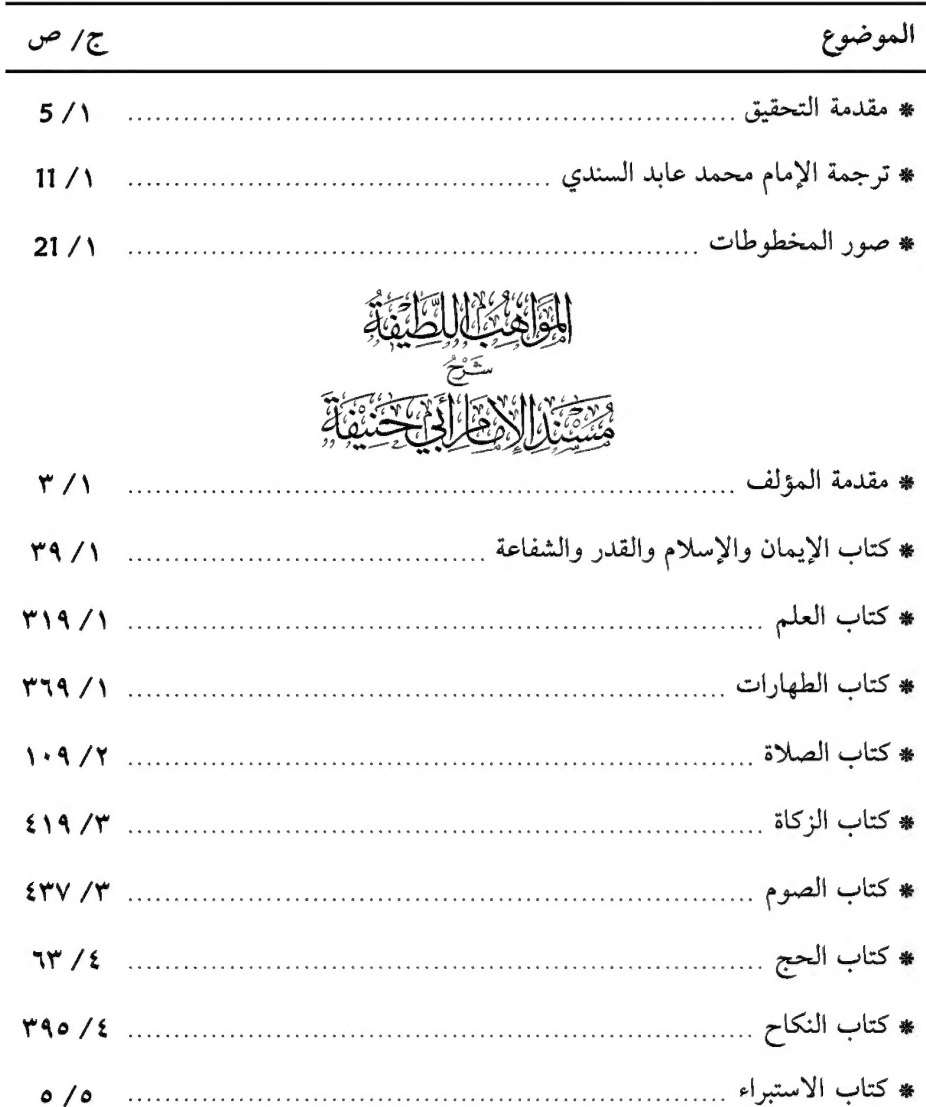 الموضوع ج/ ص
* مقدمة التحقيق ................ 5 /١
* ترجمة الإمام محمد عابد السندي ................ 11 /١
* صور المخطوطات ................ 21 /١
المَوَاهِبُ اللَّطِيْفَةُ
شَرْحُ
مُسْنَدِ الإِمَامِ أَبِي حَنِيْفَةَ
* مقدمة المؤلف ................ ١/ ٣
* كتاب الإيمان والإسلام والقدر والشفاعة ................ ١/ ٣٩
* كتاب العلم ................ ١/ ٣١٩
* كتاب الطهارات ................ ١/ ٣٦٩
* كتاب الصلاة ................ ٢/ ١٠٩
* كتاب الزكاة ................ ٣/ ٤١٩
* كتاب الصوم ................ ٣/ ٤٣٧
* كتاب الحج ................ ٤/ ٦٣
* كتاب النكاح ................ ٤/ ٣٩٥
* كتاب الاستبراء ................ ٥/ ٥